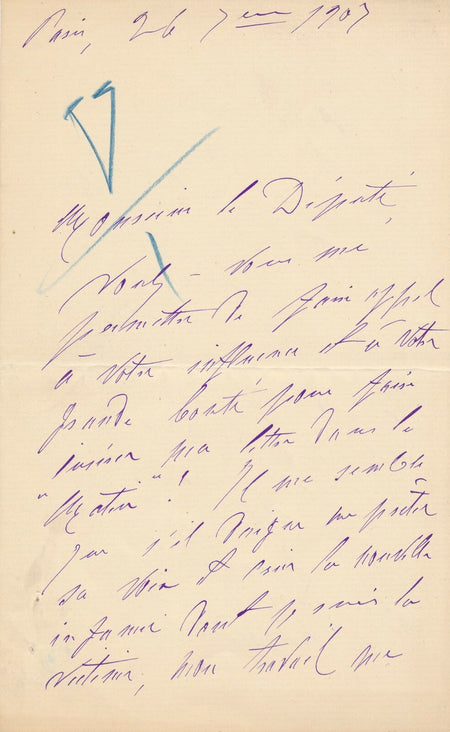 Paris, 26 7bre 1907
Monsieur le Député,
Voulez-vous me
permettre de faire appel
à votre influence et à votre
grande bonté pour faire
insérer ma lettre dans le
"Matin"! Il me semble
que s'il daigne me prêter
sa voix et crier la nouvelle
infamie dont je suis la
victime, mon travail me